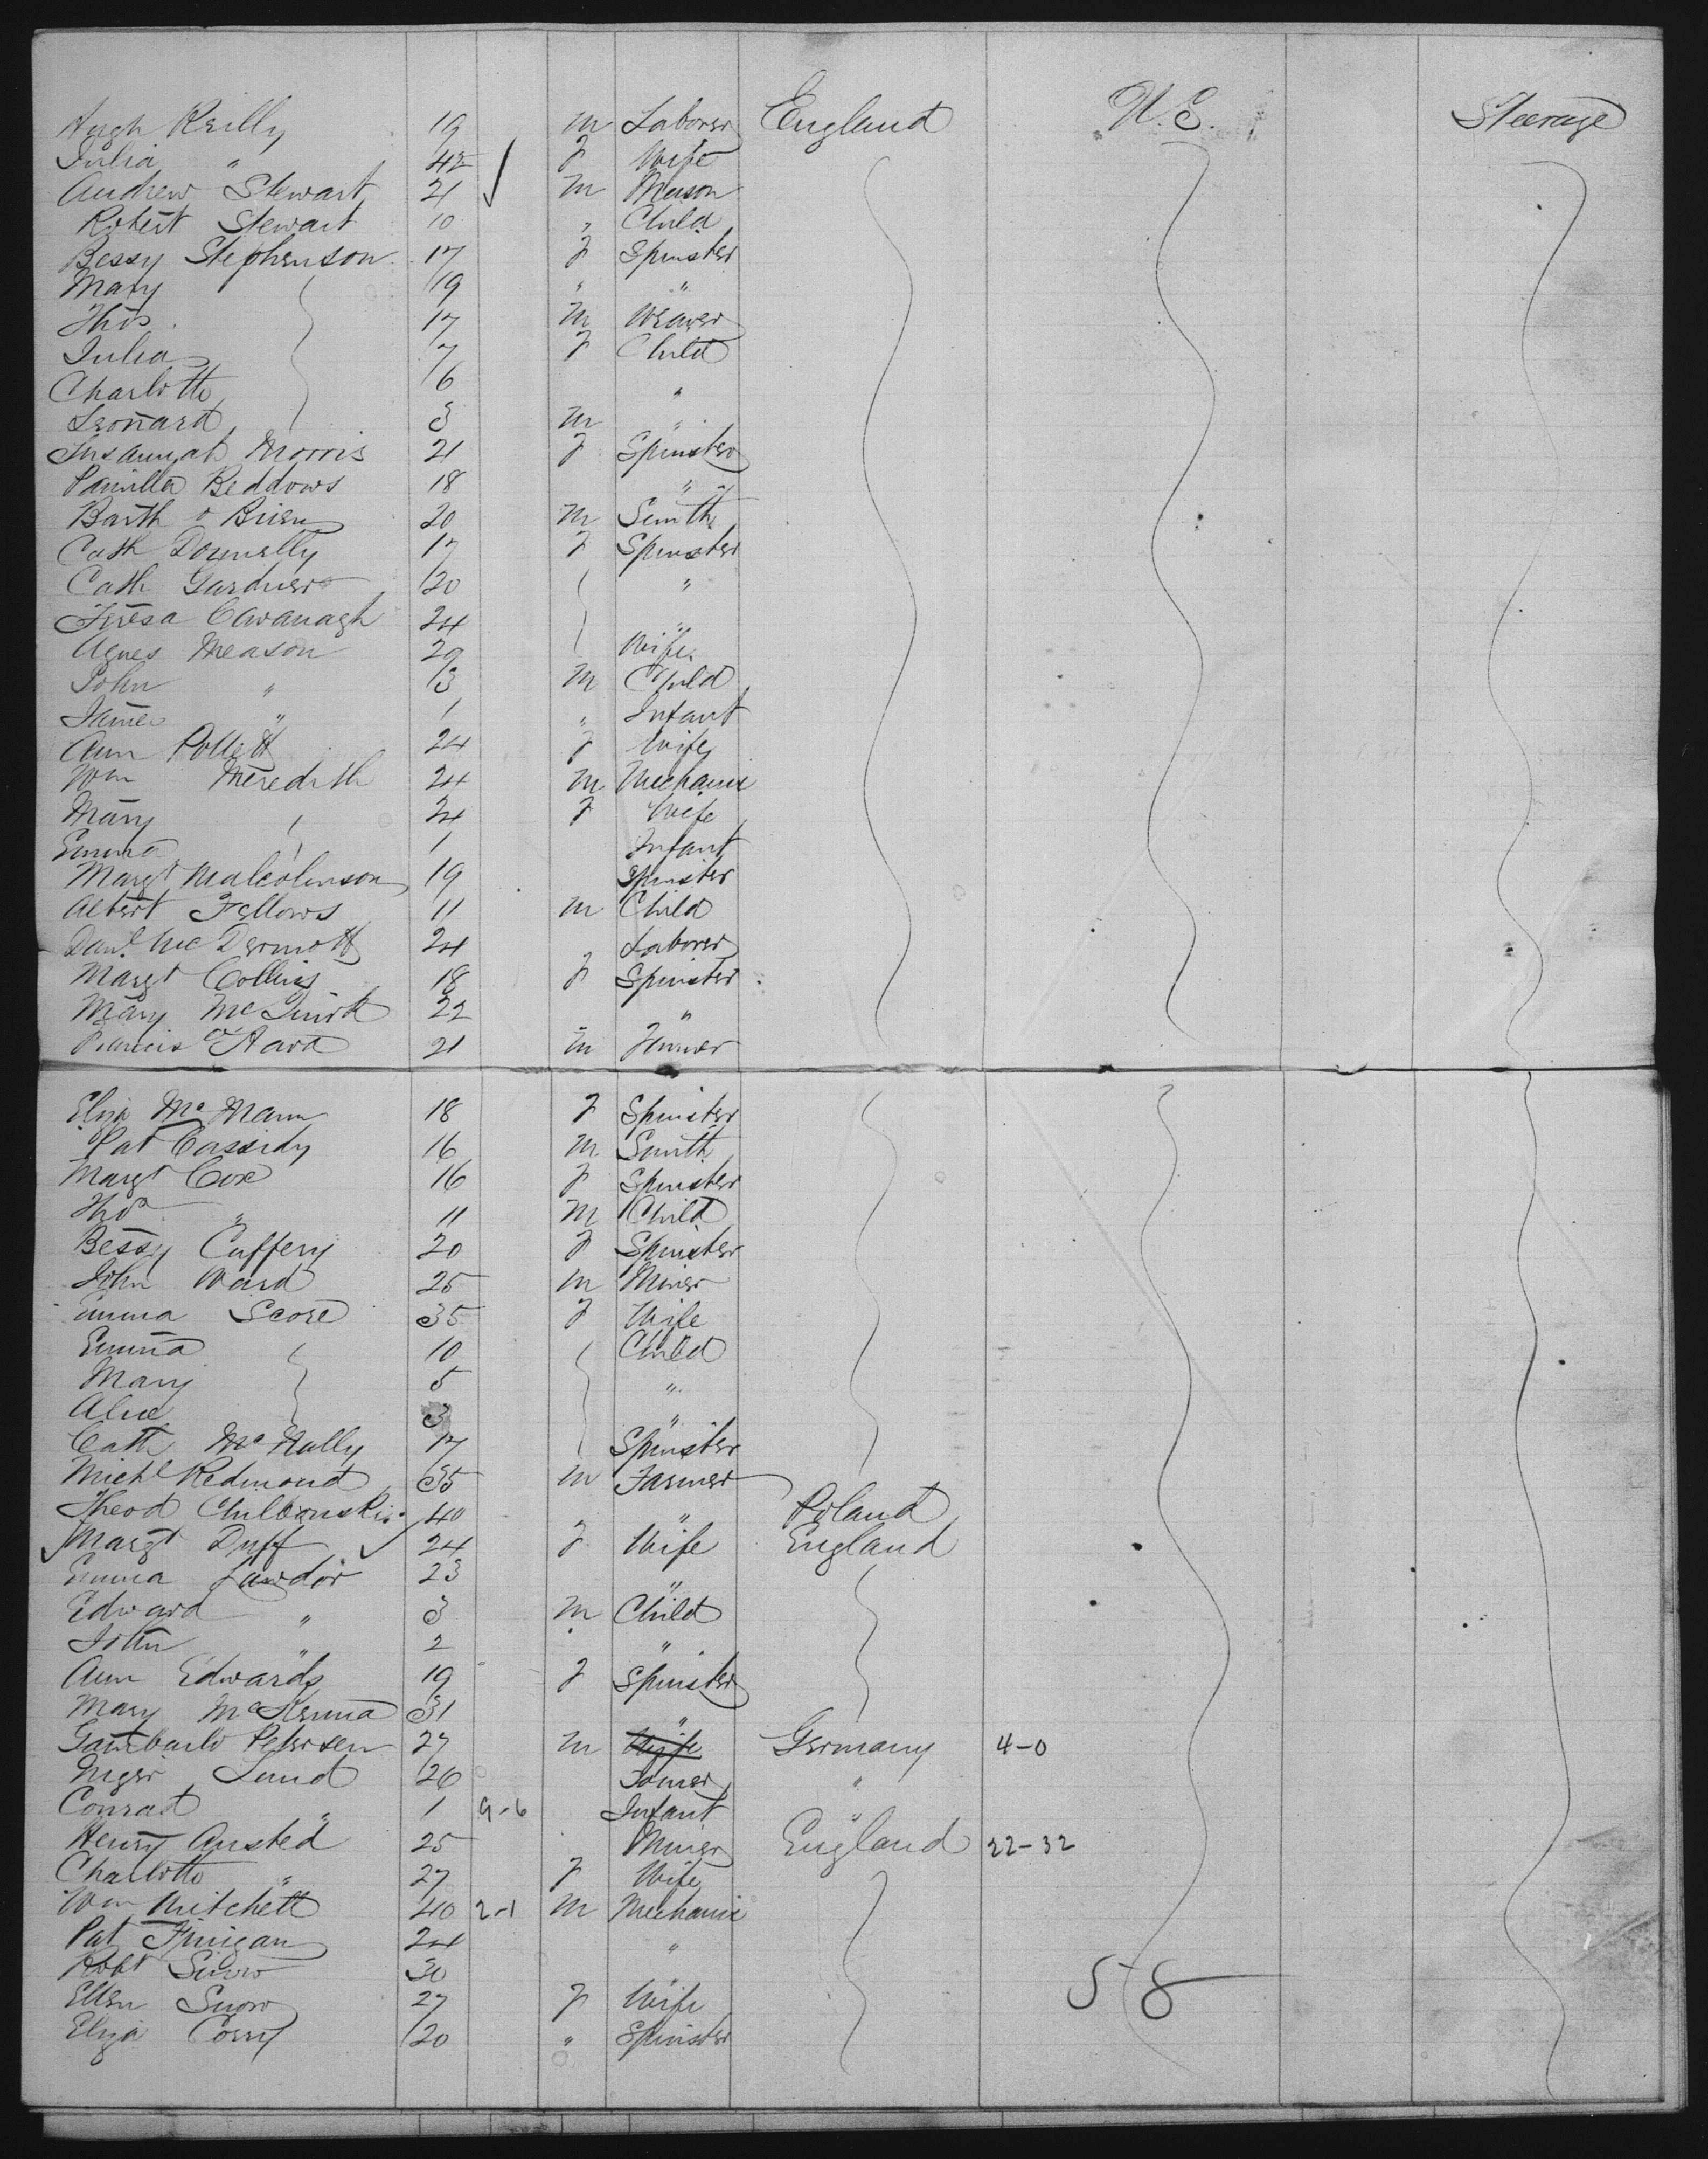 Hugh Reilly 19 m Laborer England U.S. Steerage
Julia " 42 f Wife
Andrew Stewart 21 m Mason
Robert Stewart 10 " Child
Bessy Stephenson 17 f Spinster
Mary 19 " "
Thos 17 m Weaver
Julia 7 f Child
Charlotte 6 "
Leonard 3 m "
Susannah Morris 21 f Spinster
Beddows 18 "
Barth o Brien 20 m Smith
Cath Donnelly 17 f Spinster
Cath Gardner 20 "
Teresa Cavanagh 24 "
Agnes Meason 29 Wife
John " 3 m Child
James " 1 " Infant
Ann Pollett 24 f Wife
Wm Meredith 24 m Mechanic
Mary 24 f Wife
Emma 1 Infant
Margt Malcolmson 19 Spinster
Albert Fellows 11 m Child
Danl McDermott 24 Laborer
Margt Collins 18 f Spinster
Mary McGuirk 22 "
Francis O'Hara 21 m
Eliza McMann 18 f Spinster
Pat Cassidy 16 m Smith
Margt Cox 16 f Spinster
Thos " 11 m Child
Bessy Caffery 20 f Spinster
John Ward 25 m Miner
Emma Score 35 f Wife
Emma 10 Child
Mary 5 "
Alice 3 "
Cath McNally 17 Spinster
Michl Redmond 35 m Farmer
Theod 40 " Poland
Margt Duff 24 f Wife England
Emma Lawdor 23 "
Edward " 3 m Child
John " 2 "
Ann Edwards 19 f Spinster
Mary McKenna 31 "
Petersen 27 m Wife Germany 4-0
Lund 26 "
Conrad " 1 9-6 Infant "
Henry Ansted 25 Miner England 22-32
Charlotte " 27 f Wife
Wm Mitchell 40 2-1 m Mechanic
Pat Finigan 24 "
Robt Snow 30 "
Ellen Snow 27 f Wife 58
Eliza Corry 20 " Spinster